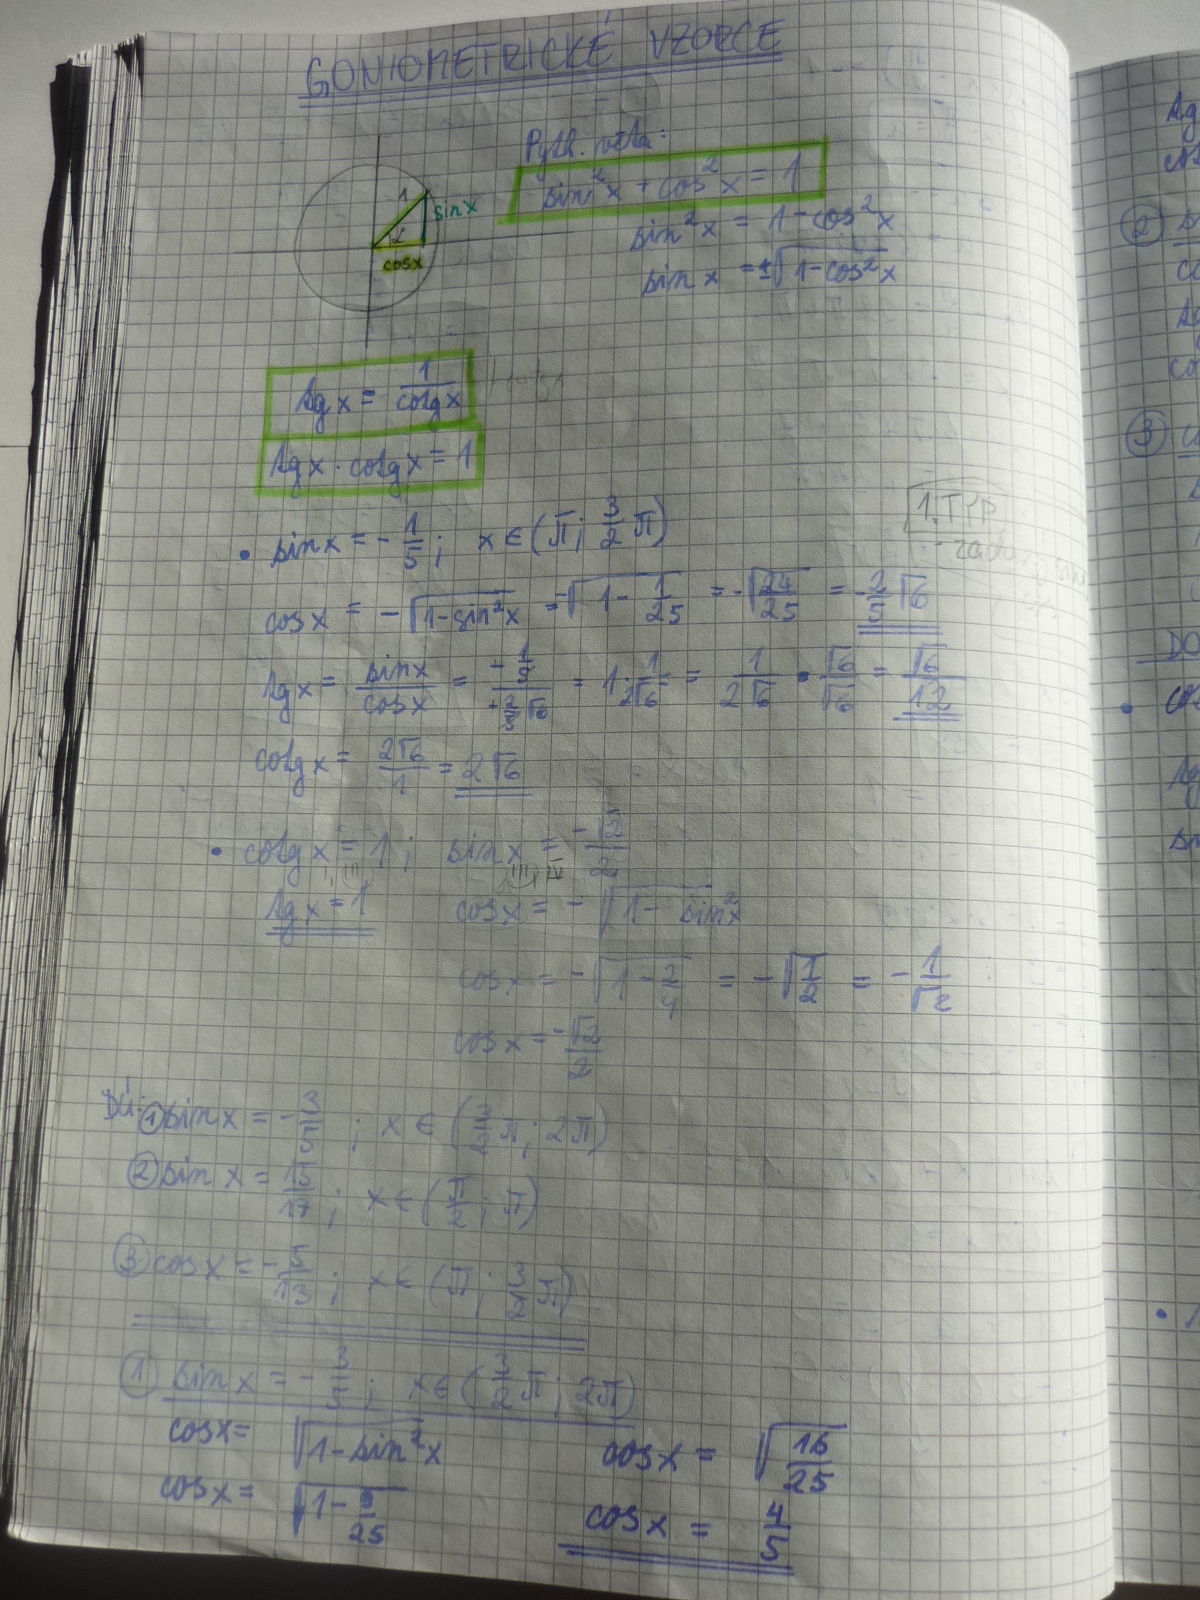 GONIOMETRICKÉ VZORCE
Pyth. věta:
sin²x + cos²x = 1
sin²x = 1 - cos²x
sin x = ±√(1-cos²x)
1
sinx
cosx
tgx = 1/cotgx
tgx · cotgx = 1
1. TYP
• sinx = -1/5; x ∈ (π; 3/2 π)
cosx = -√(1-sin²x) = -√(1 - 1/25) = -√(24/25) = -2/5 √6
tgx = sinx/cosx = (-1/5)/(-2/5 √6) = 1 · 1/(2√6) = 1/(2√6) · √6/√6 = √6/12
cotgx = 2√6/1 = 2√6
• cotgx = 1; sinx = -√2/2
I, III III, IV
tgx = 1 cosx = -√(1 - sin²x)
cosx = -√(1 - 2/4) = -√(1/2) = -1/√2
cosx = -√2/2
DÚ: ① sinx = -3/5; x ∈ (3/2 π; 2π)
② sin x = 15/17; x ∈ (π/2; π)
③ cosx = -5/13; x ∈ (π; 3/2 π)
① sinx = -3/5; x ∈ (3/2 π; 2π)
cosx = √(1-sin²x) cosx = √(16/25)
cosx = √(1 - 9/25) cosx = 4/5
②
③